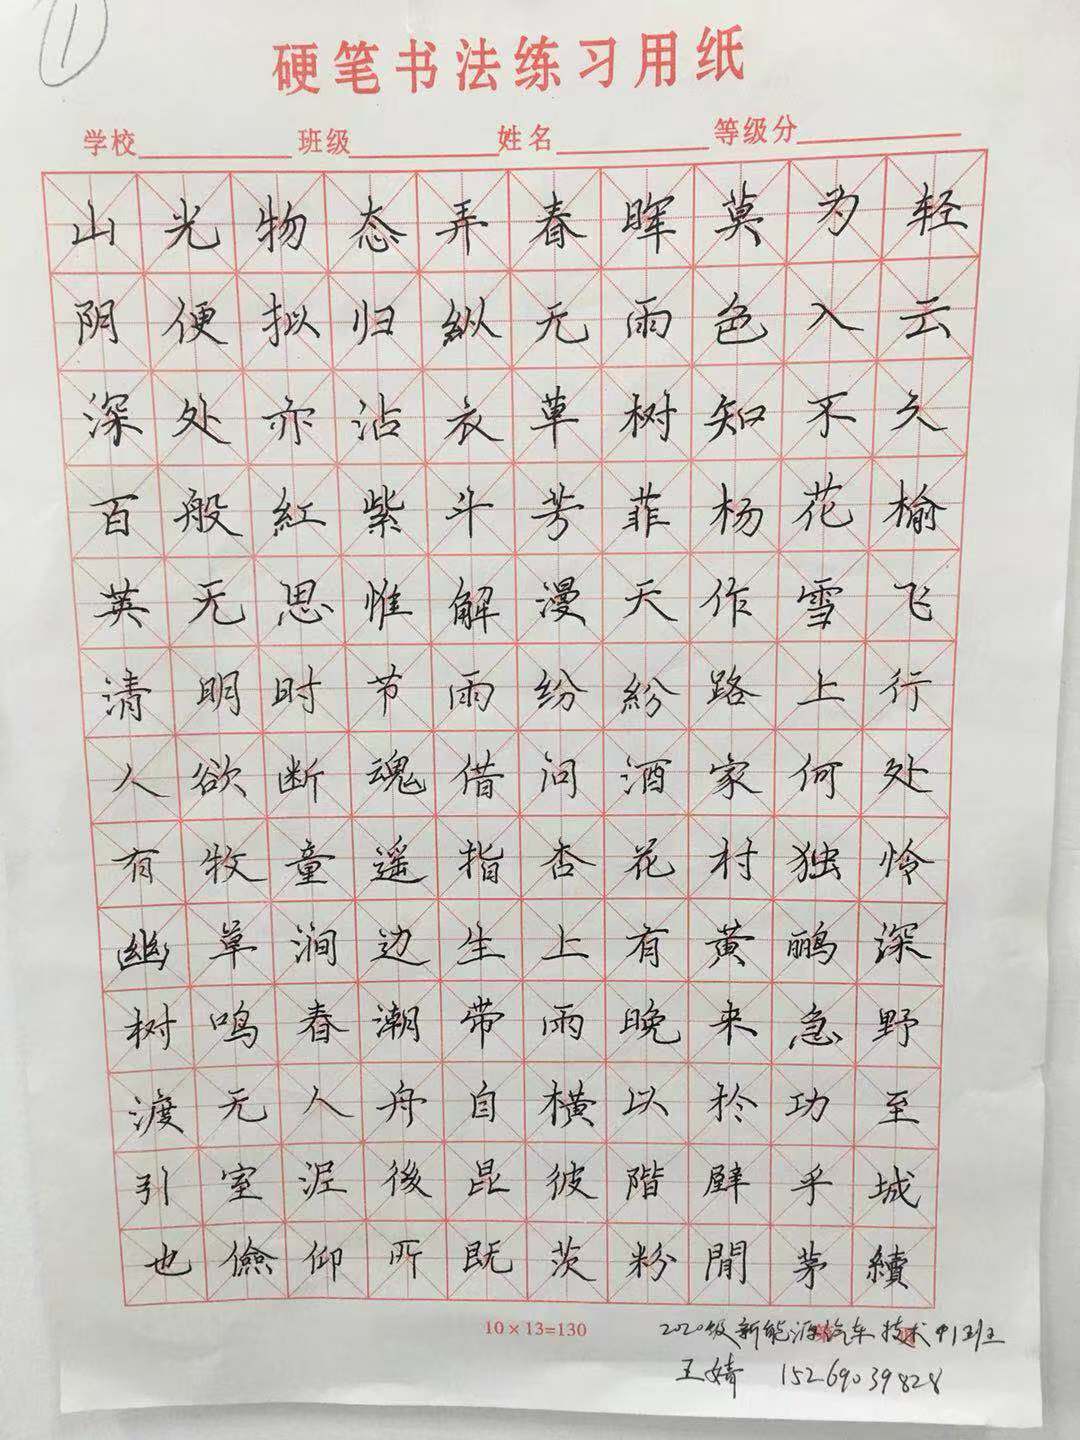 1
硬笔书法练习用纸
学校 班级 姓名 等级分
山光物态弄春晖莫为轻
阴便拟归纵无雨色入云
深处亦沾衣草树知不久
百般紅紫斗芳菲杨花榆
英无思惟解漫天作雪飞
清明时节雨纷紛路上行
人欲断魂借问酒家何处
有牧童遥指杏花村独怜
幽草涧边生上有黄鹂深
树鸣春潮带雨晚来急野
渡无人舟自横以於功至
引室泥後昆彼階壁乎城
也儉仰所既茨粉閒茅續
10×13=130
2020级新能源汽车技术中1班
王婧 15269039828